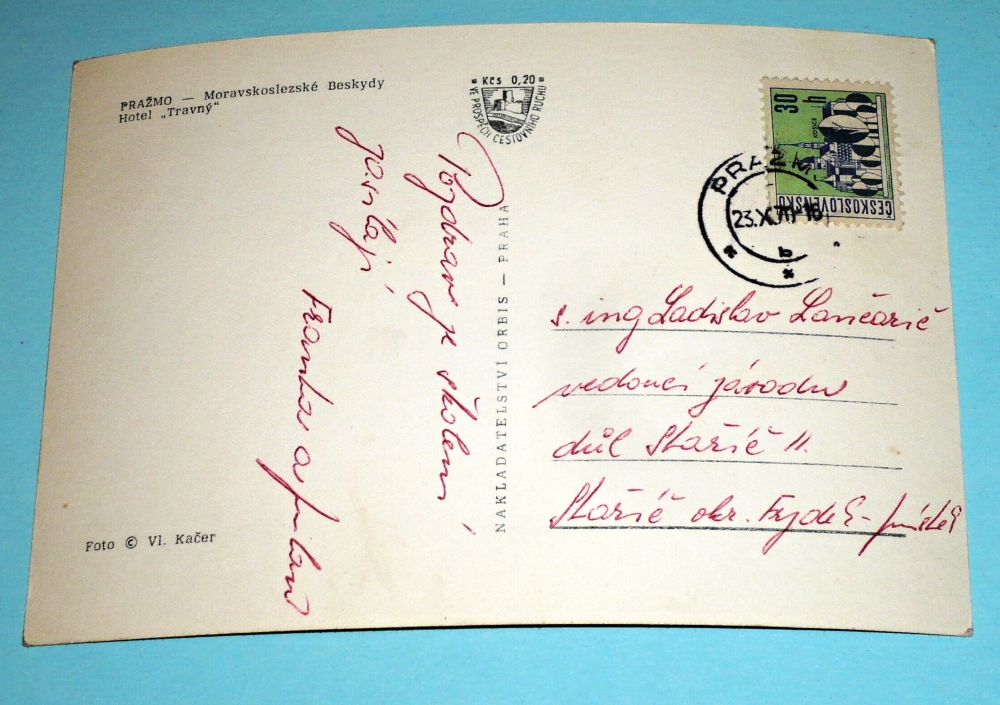 PRAŽMO — Moravskoslezské Beskydy
Hotel „Travný"
Kčs 0,20
VE PROSPĚCH CESTOVNÍHO RUCHU
30 h
KOŠICE
ČESKOSLOVENSKO
PRAŽM
23.X.70-16
b
Pozdrav ze školení
posílají
Franta a
NAKLADATELSTVÍ ORBIS — PRAHA
s. ing Ladislav Lančarič
vedoucí závodu
důl Staříč II.
Staříč okr. Frýdek-Místek
Foto © Vl. Kačer